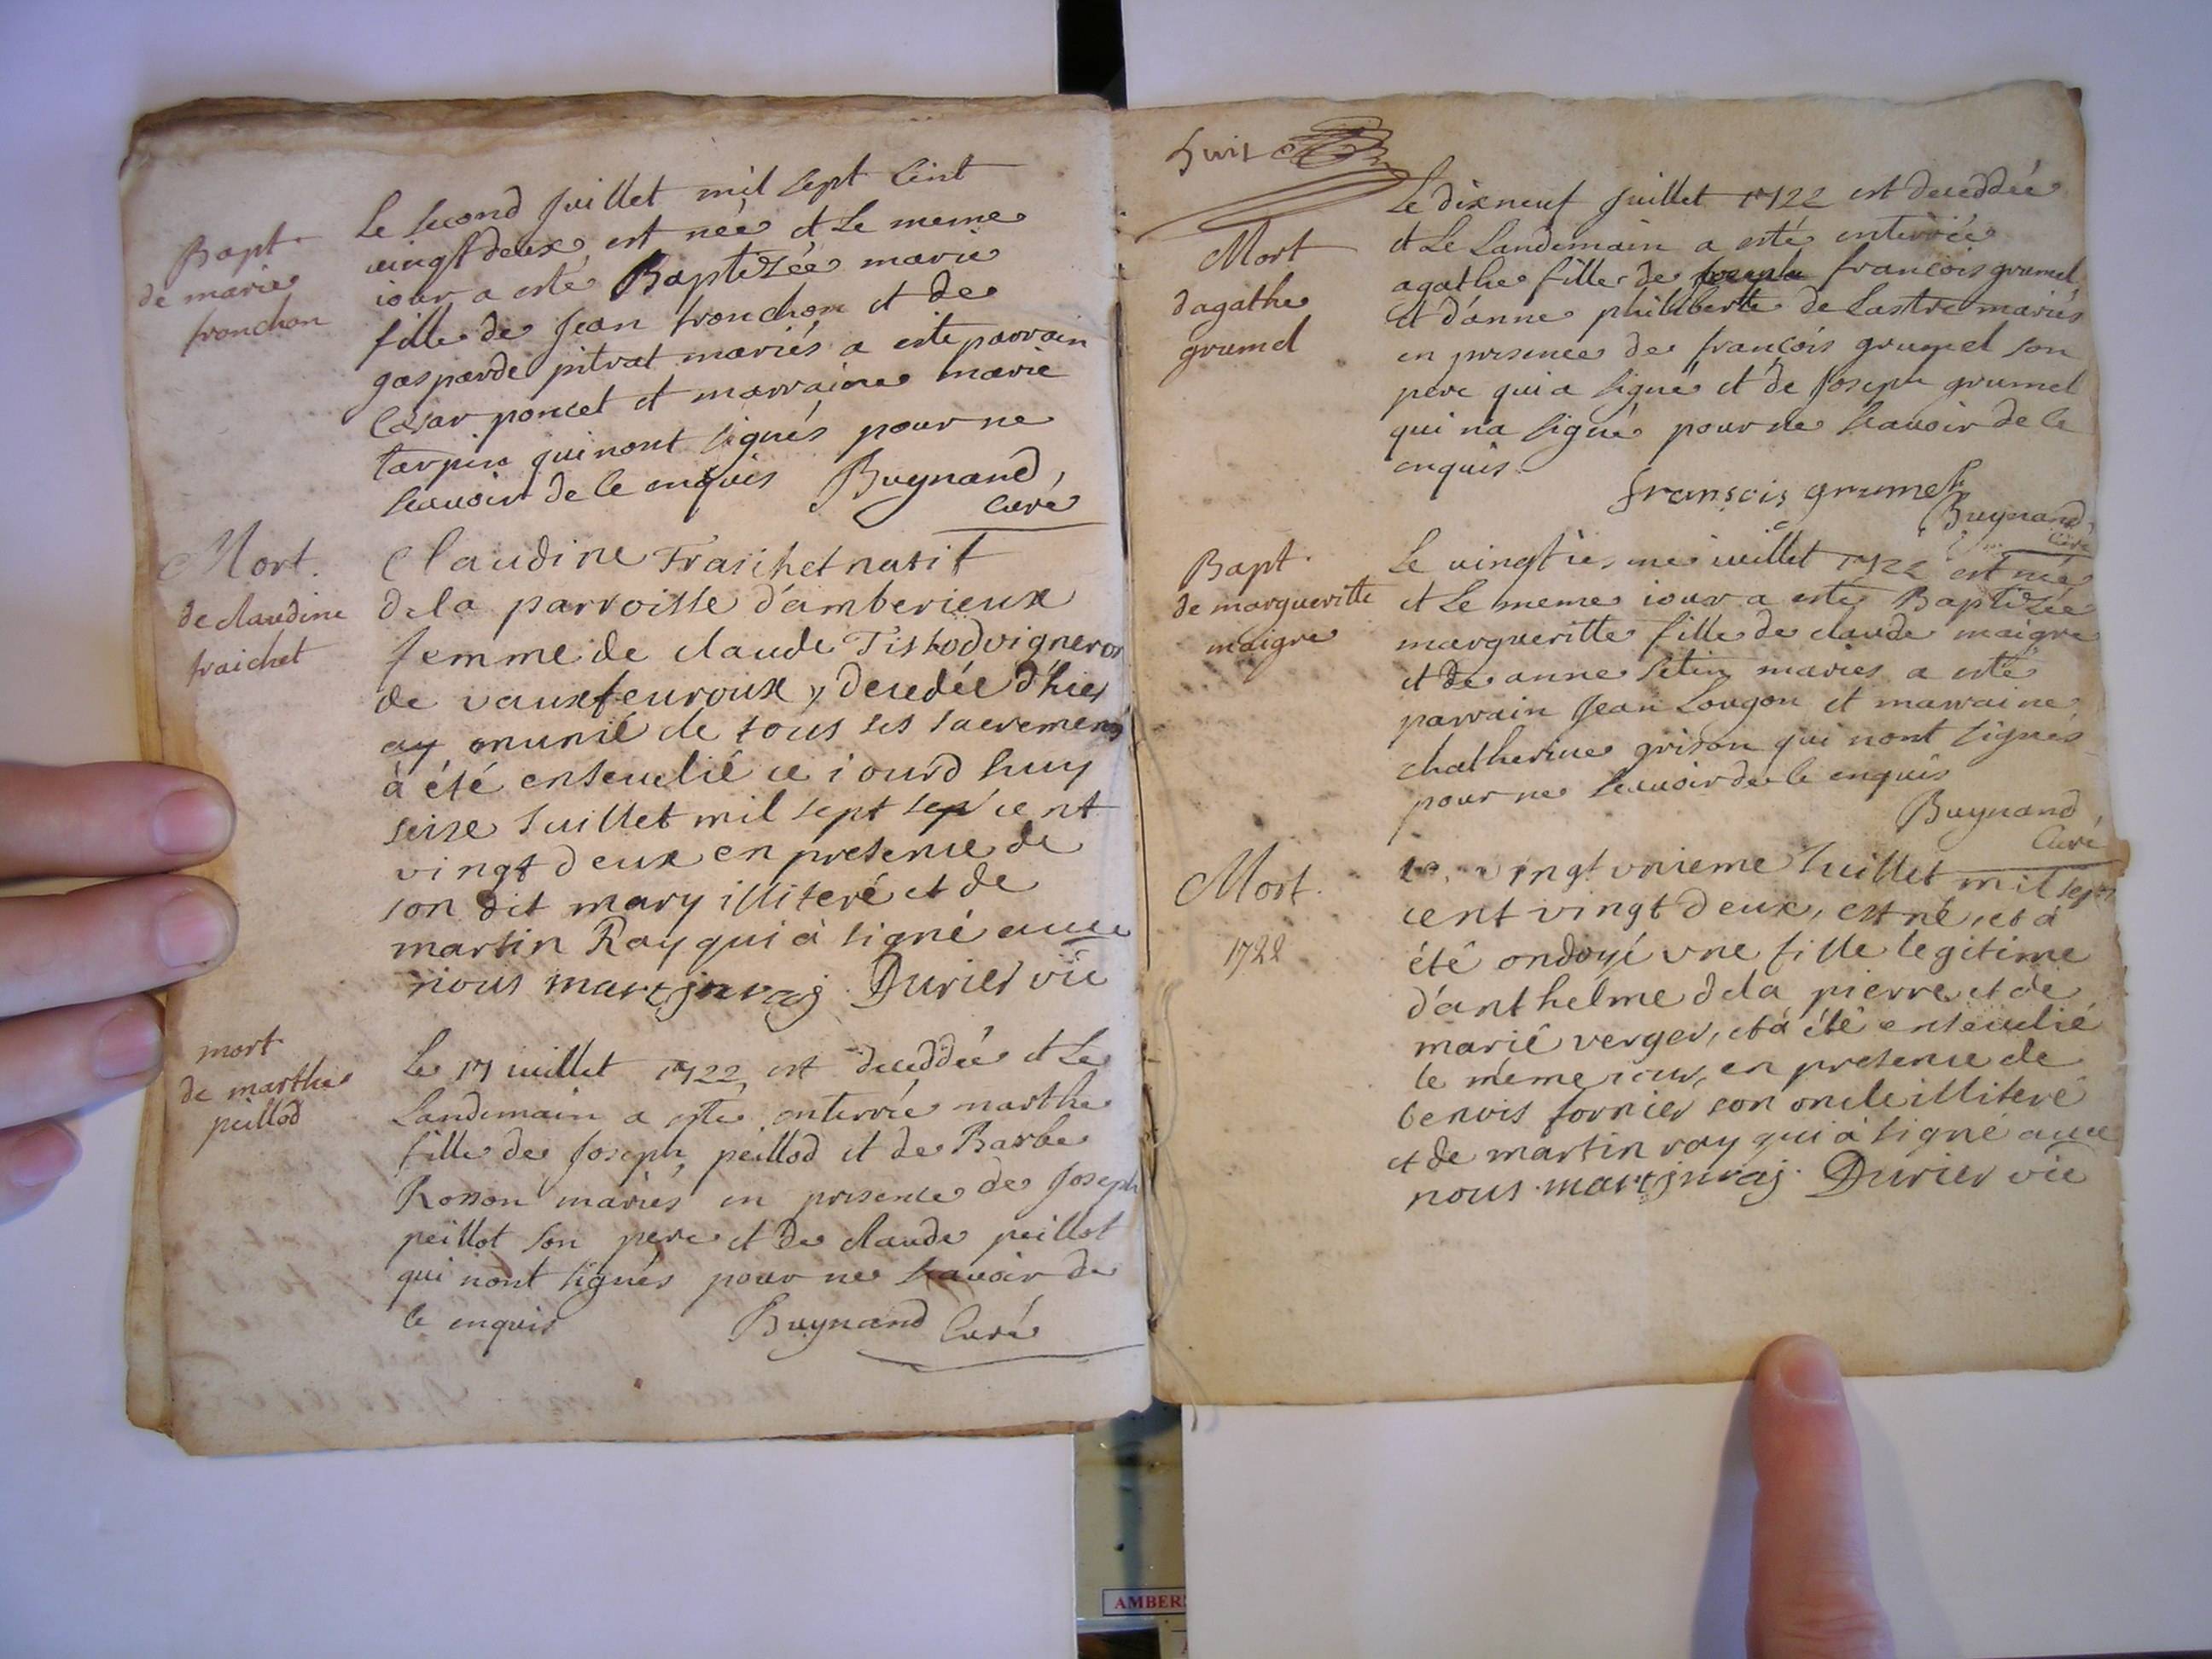 Bapt.
de marie
tronchon
Le second Juillet mil sept Cent
vingtdeux est née et Le meme
iour a esté Baptizée marie
fille de Jean tronchon et de
gasparde pitrat mariés a este parrain
Cesar poncet et marraine marie
tarpin qui nont signés pour ne
scauoir de ce enquis Buynand,
Curé
Mort.
de claudine
fraichet
Claudine Fraichet natif
dela parroisse d'amberieux
femme de claude Tissod vigneron
de vauxfeuroux, decedée d'hier
ay munié de tous ses sacremens
à été enseuelié ce iourd huy
seize Iuillet mil sept sep cent
vingt deux en presence de
son dit mary illiteré et de
martin Ray qui à signé auec
nous Durier vic
mort
de marthe
peillod
Le 17 iuillet 1722 est deceddée et Le
Landemain a esté enterrée marthe
fille de Joseph peillod et de Barbe
Rosson mariés en presence de Joseph
peillot son pere et de claude peillot
qui nont signés pour ne scauoir de
ce enquis Buynand Curé
huit
Mort
dagathe
grumel
Le dixneuf Juillet 1722 est deceddée
et Le Landemain a esté enterrée
agathe fille de joseph francois grumel
et d'anne philiberte de Lastre mariés
en presence de françois grumel son
pere qui a signé et de Joseph grumel
qui na signé pour ne scauoir de ce
enquis
fransois grumel
Buynand,
Curé
Bapt.
de margueritte
maigre
Le vingtiesme iuillet 1722 est née
et Le meme iour a esté Baptizée
margueritte fille de claude maigre
et de anne setin mariés a esté
parrain Jean Lougon et marraine
chatherine grison qui nont signés
pour ne scauoir de ce enquis
Buynand,
Curé
Mort.
1722
Le vingt vnieme Iuillet mil sept
cent vingt deux, est né, et à
été ondoyé vne fille legitime
d'anthelme dela pierre et de
marié verger, et à été enseuelié
le même iour, en presence de
benois fornier son oncle illiteré
et de martin ray qui à signé auec
nous Durier vic
AMBER